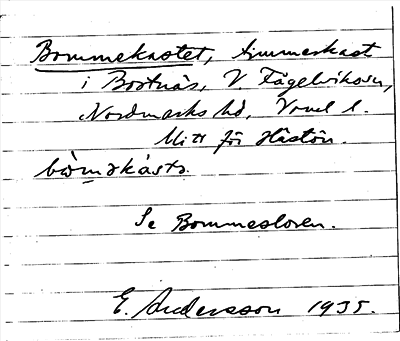 Bommekastet, timmerkast
i Bortnäs, V. Fågelvikssn,
Nordmarks hd, Vrml l.
Mitt för Hästön.
bòm̲əkást₂.
Se Bommesloren.
E. Andersson 1935.